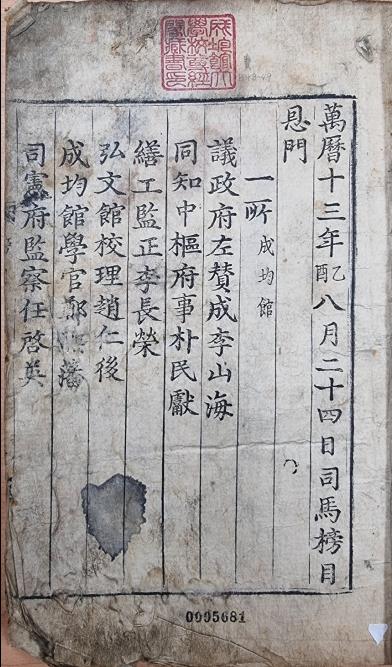 成均館大
學校尊經
閣藏書印
萬曆十三年乙酉八月二十四日司馬榜目
恩門
一所 成均館
議政府左贊成李山海
同知中樞府事朴民獻
繕工監正李長榮
弘文館校理趙仁後
成均館學官鄭 藩
司憲府監察任啓英
0005681